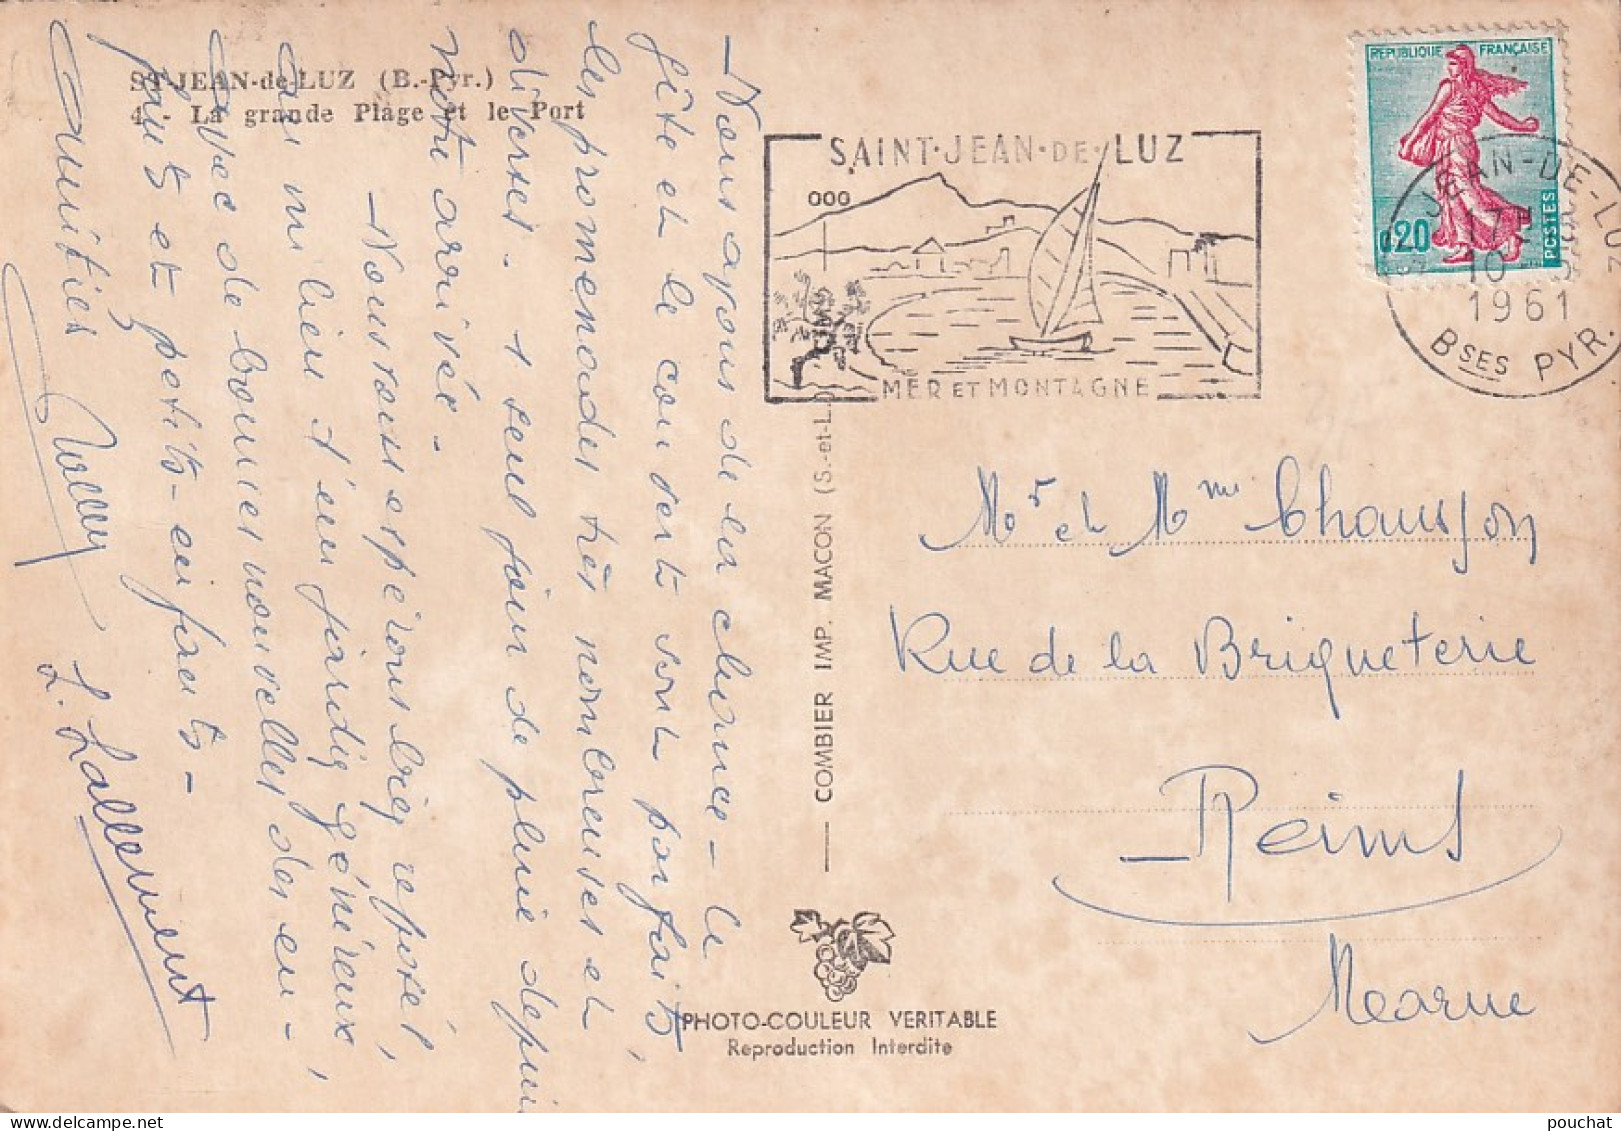 ST-JEAN-de-LUZ (B.-Pyr.)
4 - La grande Plage et le Port
- Nous avons de la chance - le
gîte et le couvert sont parfaits,
les promenades très nombreuses et
diverses - 1 seul jour de pluie depuis
notre arrivée -
- Nous vous espérons bien reposé,
au milieu d'un jardin généreux,
avec de bonnes nouvelles des en-
fants et petits-enfants -
Amitiés
L. Lallement
COMBIER IMP. MACON (S.-et-L.)
SAINT-JEAN-DE-LUZ
MER ET MONTAGNE
REPUBLIQUE FRANÇAISE
0,20
POSTES
JEAN-DE-LUZ
17H
10
1961
BSES PYR.
Mr et Mme Chausson
Rue de la Briqueterie
- Reims
Marne
PHOTO-COULEUR VERITABLE
Reproduction Interdite
pouchat